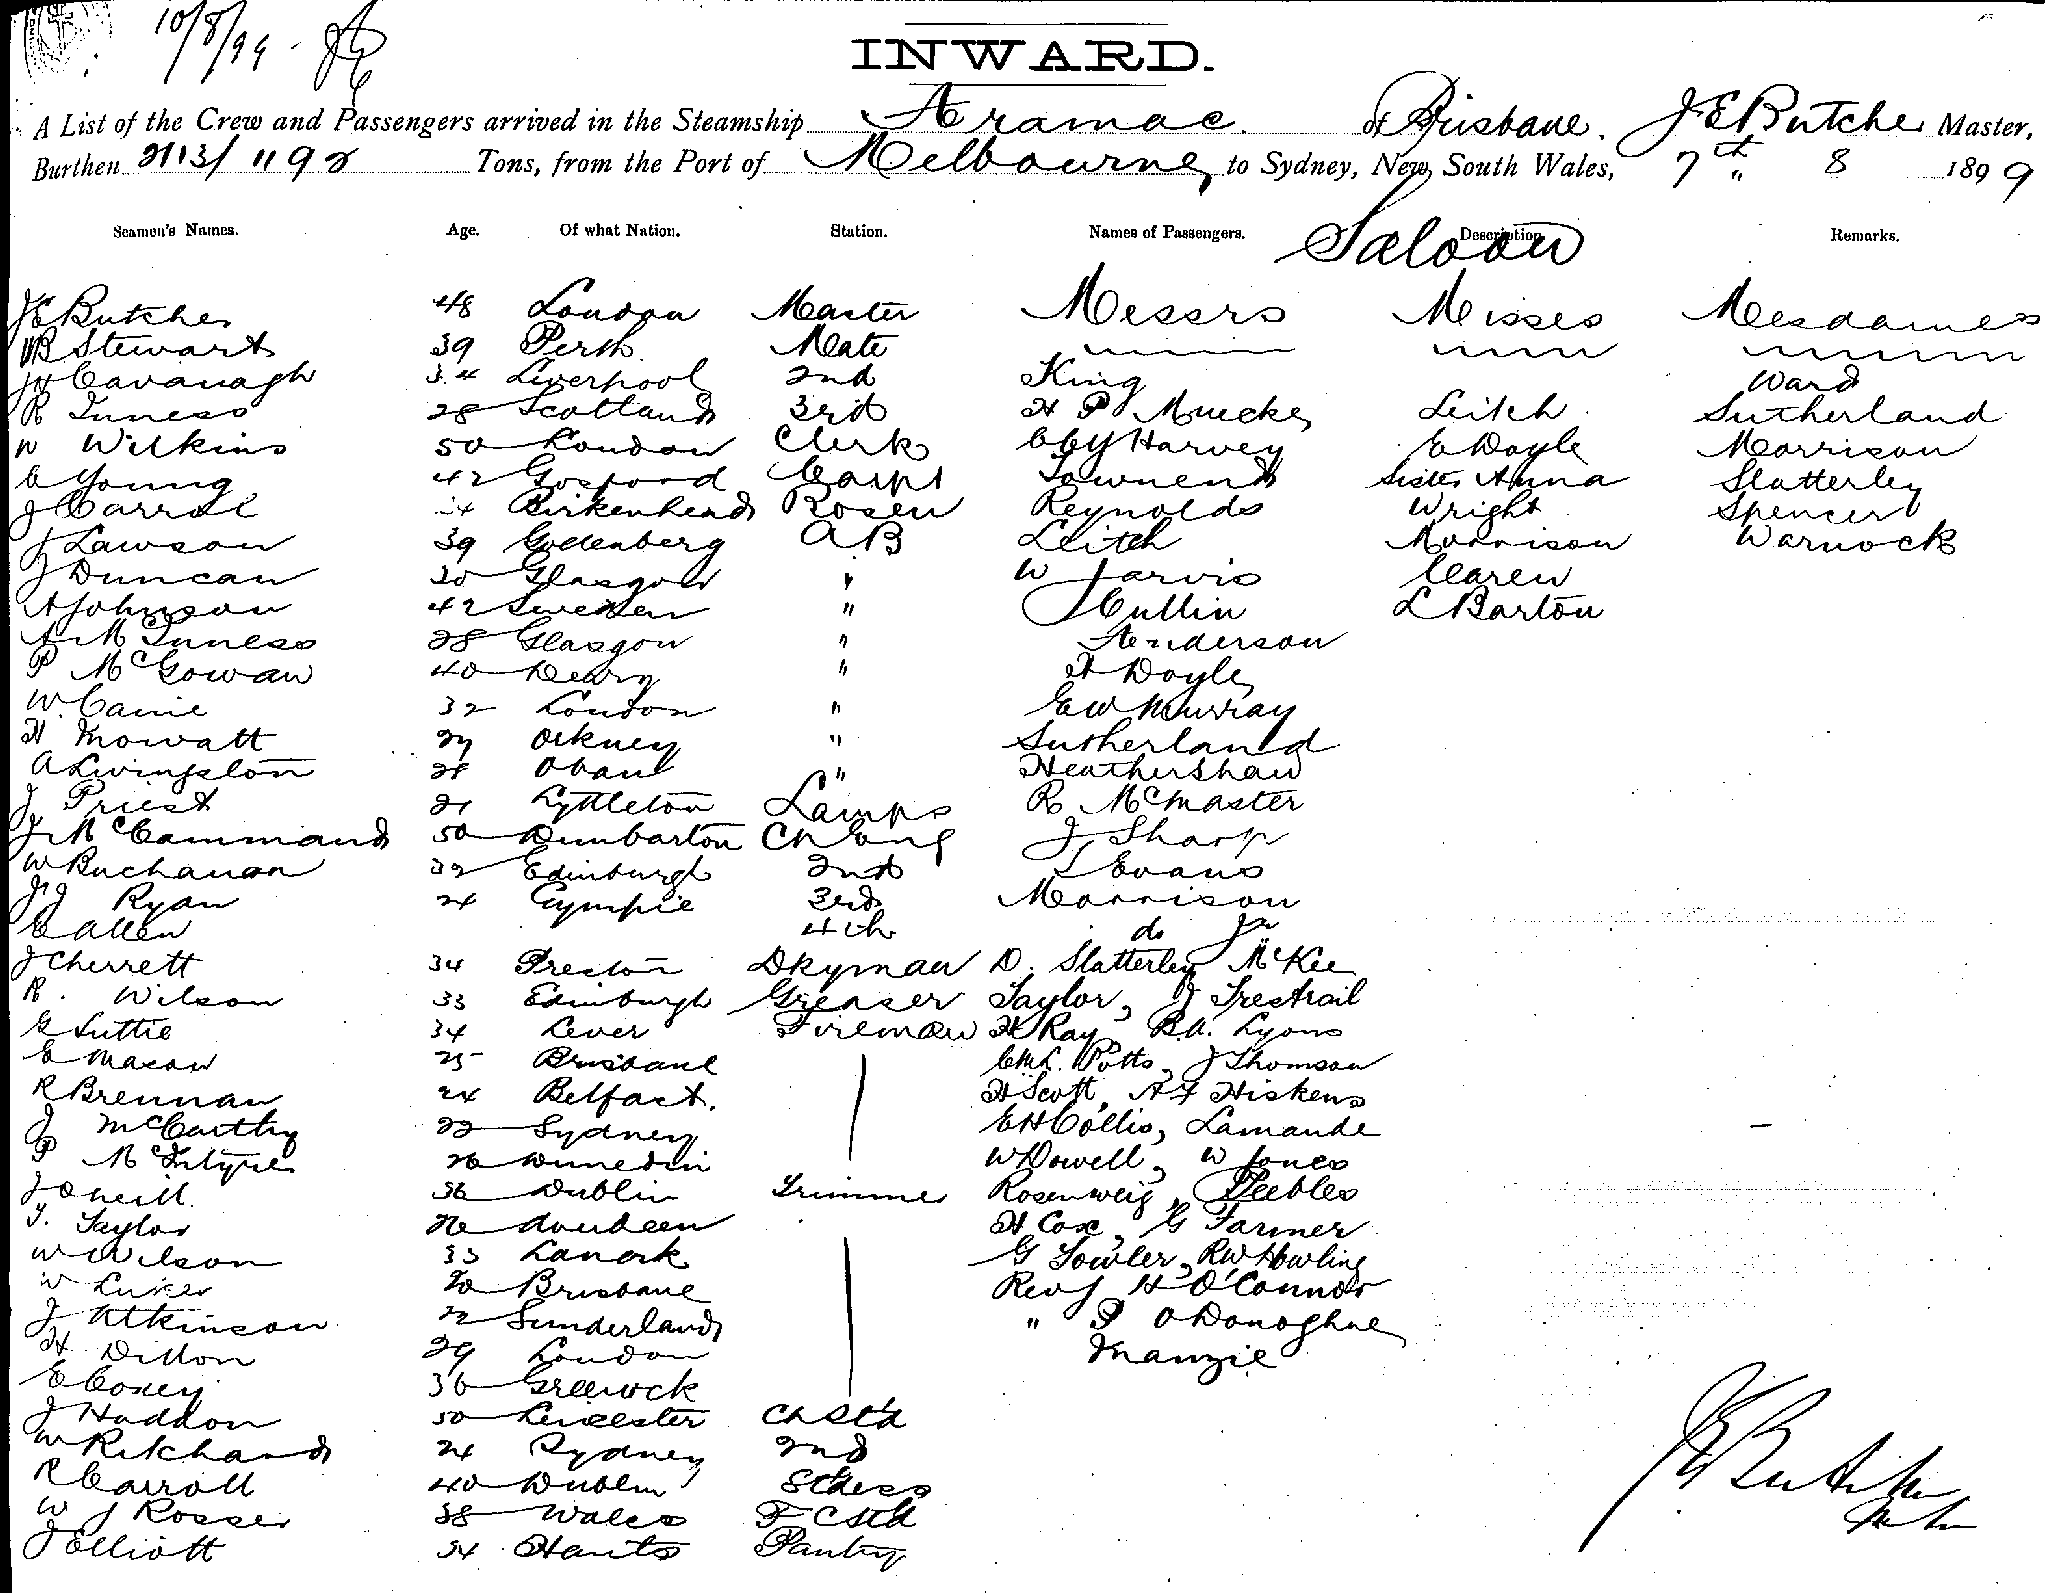 10/8/99
INWARD.
A List of the Crew and Passengers arrived in the Steamship Aramac. of Brisbane. J E Butcher Master,
Burthen 2113/1192 Tons, from the Port of Melbourne, to Sydney, New South Wales, 7th " 8 1899
Seamen's Names. Age. Of what Nation. Station. Names of Passengers. Description Remarks.
Saloon
J E Butcher 48 London Master Messrs Misses Mesdames
Stewart 39 Perth Mate
Cavanagh 34 Liverpool 2nd King Ward
R Inness 28 Scotland 3rd H P Muecke Leitch Sutherland
W Wilkins 50 London Clerk Harvey E Doyle Morrison
C Young 42 Gosford Carpt Townend Sister Anna Slatterley
J Carrol Birkenhead Bosen Reynolds Wright Spencer
J Lawson 39 Gottenberg AB Leitch Morrison Warnock
J Duncan 30 Glasgow " W Jarvis Caren
A Johnson 42 Sweden " J Cullin L Barton
A McInness 28 Glasgow " Henderson
P McGowan 40 Derry " H Doyle
W. Caine 32 London " E W Murray
H Mowatt 29 Orkney " Sutherland
A Livingston 28 Oban " Heathershaw
J Priest 21 Lyttleton Lamps R McMaster
J McCammand 50 Dumbarton Ch Eng J Sharp
W Buchanan 32 Edinburgh 2nd Evans
J J Ryan 24 Gympie 3rd Morrison
C Allen 4th do Jr
J Cherrett 34 Preston Dkyman D. Slatterley McKee
R. Wilson 33 Edinburgh Greaser Taylor, J Trestrail
G Suttie 34 Lever Fireman H Ray, B.A. Lyons
E Macow 25 Brisbane C M L. Potts, J Thomson
R Brennan 24 Belfast. H Scott, A F Hiskens
J McCarthy 22 Sydney E H Collis, Lamande
P McIntyre 26 Dunedin W Dowell, W Jones
J Oneill. 36 Dublin Trimmer Rosenweig, Peebles
T. Taylor 26 Aberdeen H Cox, G Farmer
W Wilson 33 Lanark G Fowler, R W Howling
W Luker 20 Brisbane Revs H O'Connor
J Atkinson 22 Sunderland " P O Donoghue
H Dillon 29 London Manzie
E Coxey 36 Greenock
J Haddon 50 Leicester Ch Std
W Ritchard 24 Sydney 2nd
R Carroll 40 Dublin Stdess
W J Rosser 38 Wales F C Std
J Elliott 34 Hants Pantry
J E Butcher